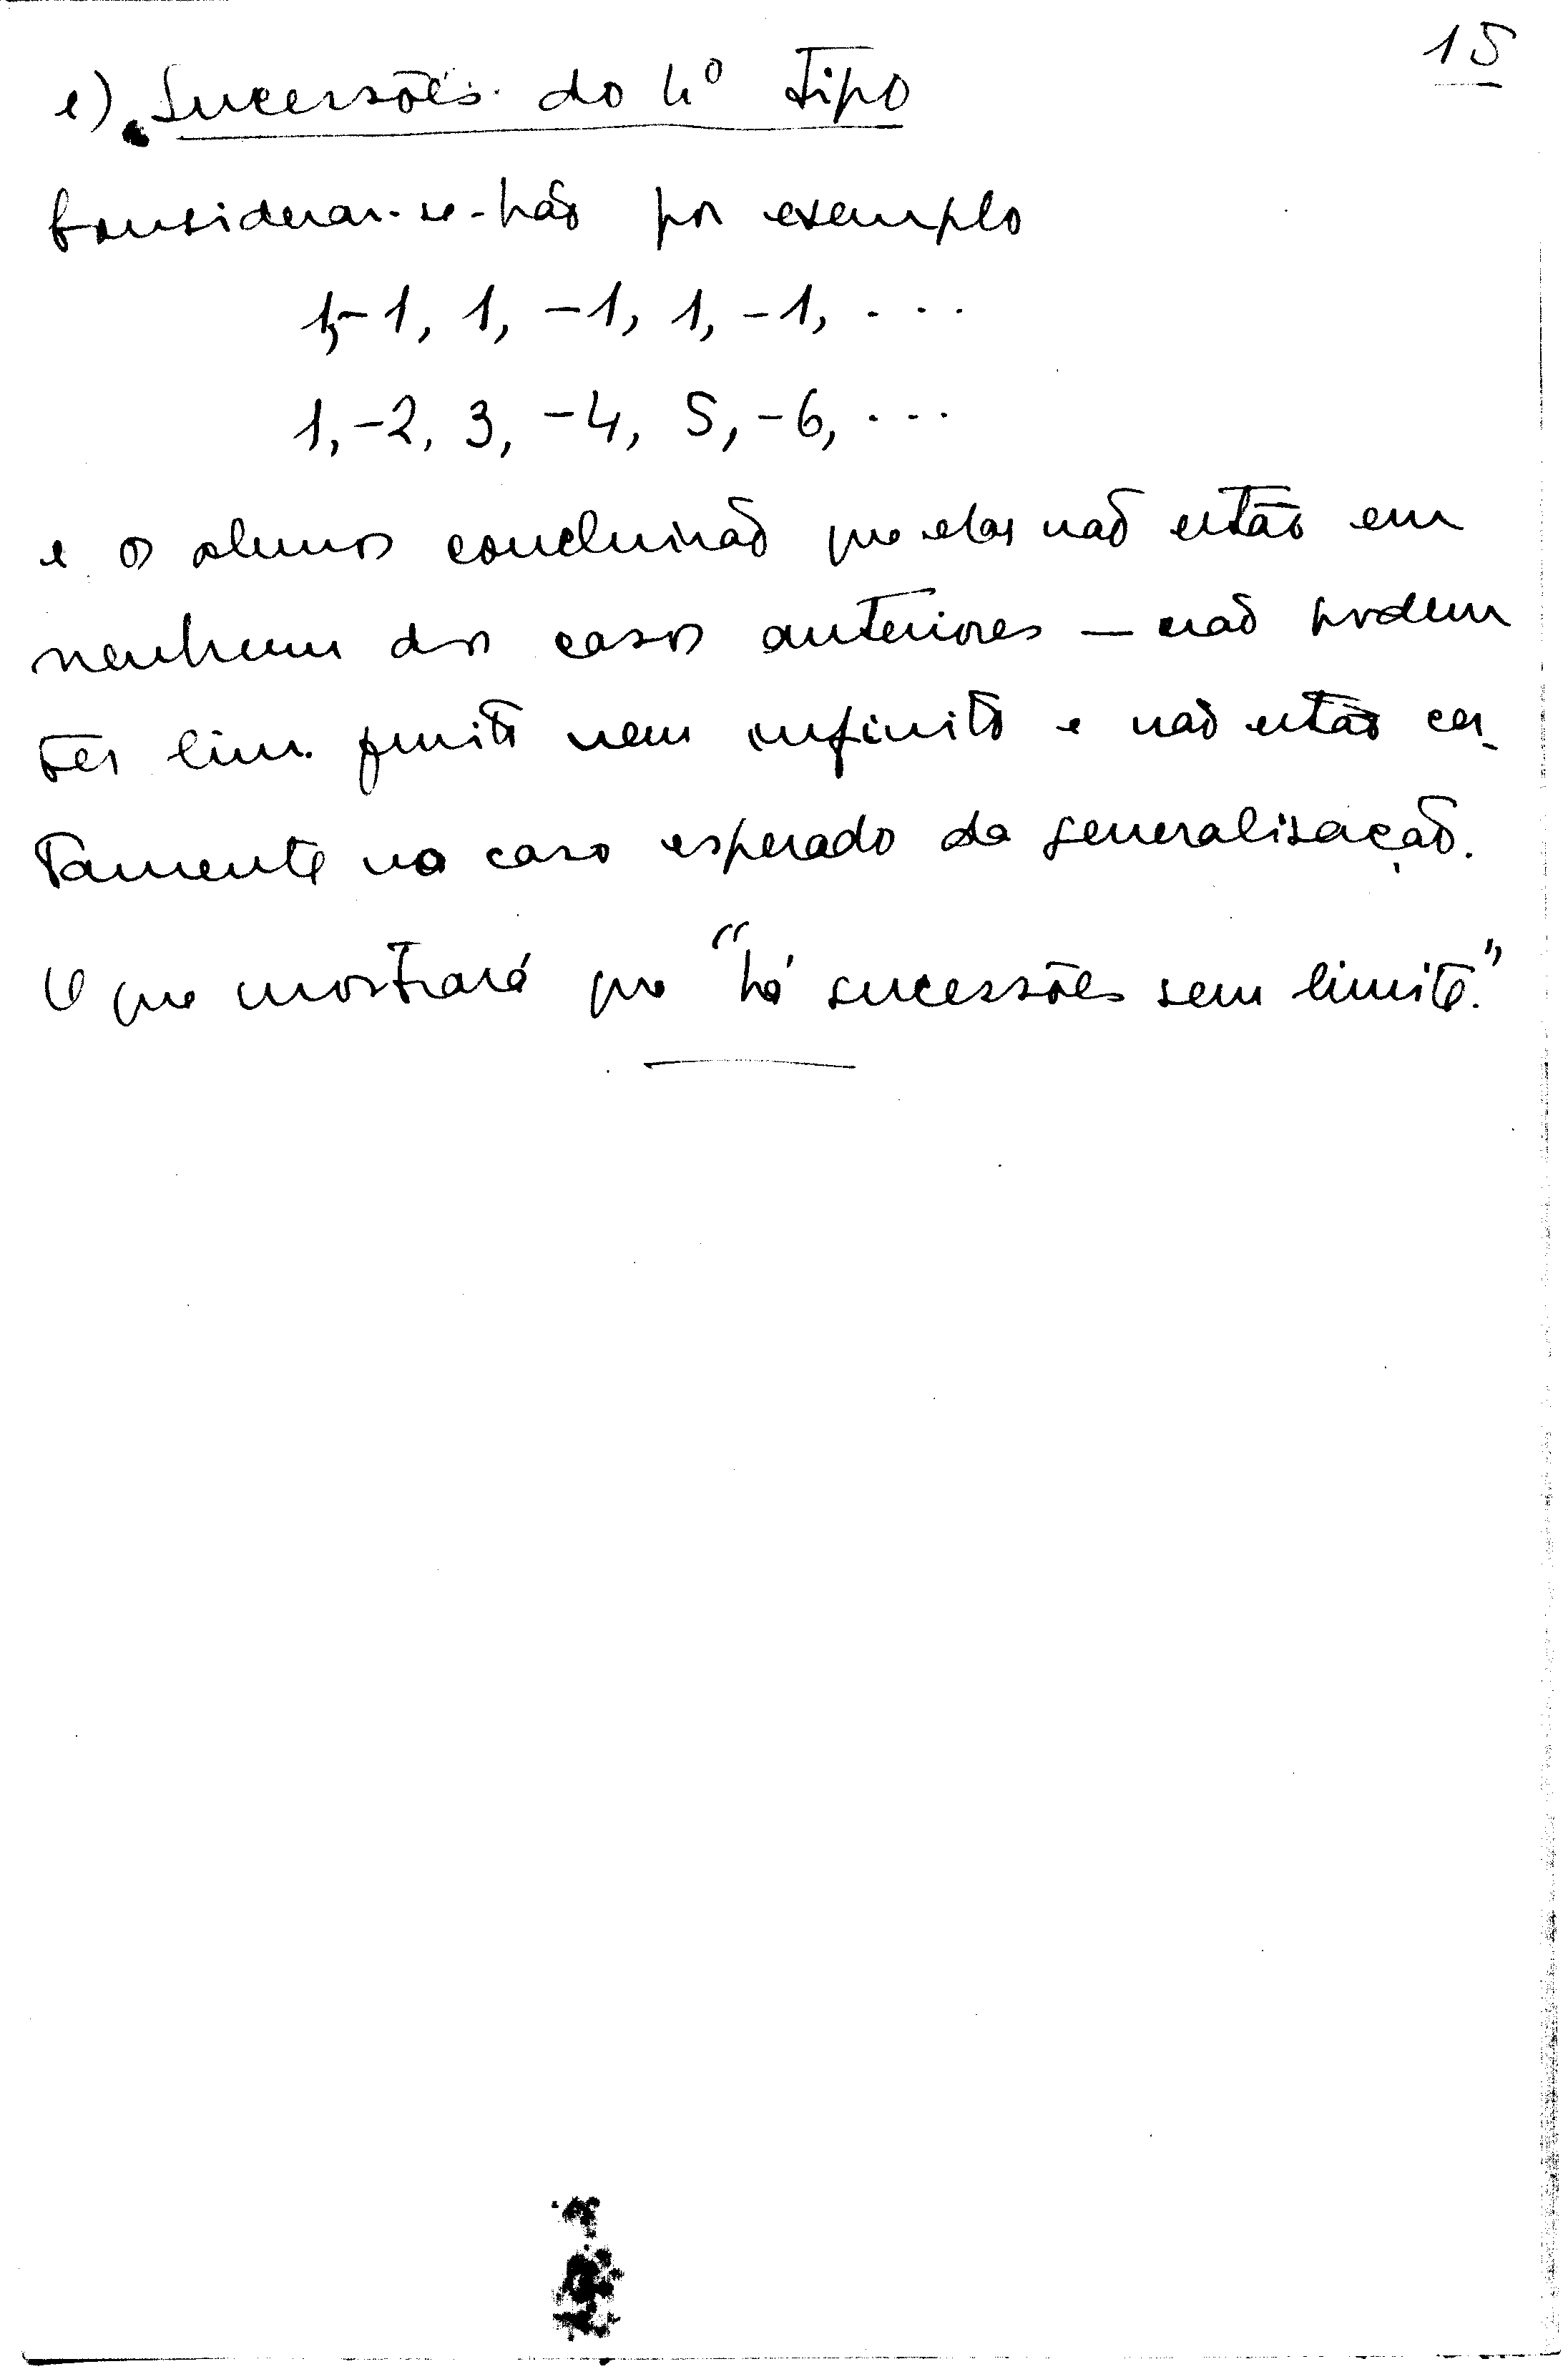 15
e) Sucessões do 4º tipo
Considerar-se-hão por exemplo
1,-1, 1, -1, 1, -1, ....
1,-2, 3, -4, 5, -6, ....
e os alunos concluirão que elas não estão em
nenhum dos casos anteriores — não podem
ter lim. finito nem infinito e não estão cer-
tamente no caso esperado da generalisação.
O que mostrará que "há sucessões sem limite."